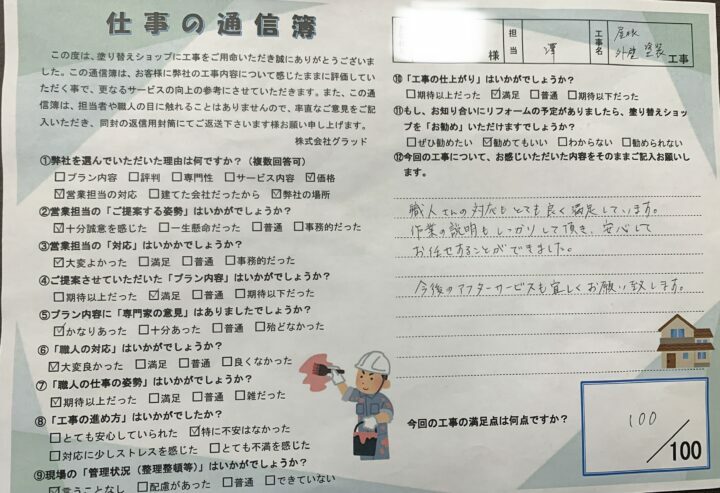 仕事の通信簿
この度は、塗り替えショップに工事をご用命いただき誠にありがとうございま
した。この通信簿は、お客様に弊社の工事内容について感じたままに評価していた
だく事で、更なるサービスの向上の参考にさせていただきます。また、この通
信簿は、担当者や職人の目に触れることはありませんので、率直なご意見をご記
入いただき、同封の返信用封筒にてご返送下さいます様お願い申し上げます。
株式会社グラッド
①弊社を選んでいただいた理由は何ですか?(複数回答可)
□プラン内容 □評判 □専門性 □サービス内容 ☑価格
☑営業担当の対応 □建てた会社だったから ☑弊社の場所
②営業担当の「ご提案する姿勢」はいかがでしょうか?
☑十分誠意を感じた □一生懸命だった □普通 □事務的だった
③営業担当の「対応」はいかがでしょうか?
☑大変よかった □満足 □普通 □事務的だった
④ご提案させていただいた「プラン内容」はいかがでしょうか?
□期待以上だった ☑満足 □普通 □期待以下だった
⑤プラン内容に「専門家の意見」はありましたでしょうか?
☑かなりあった □十分あった □普通 □殆どなかった
⑥「職人の対応」はいかがでしょうか?
☑大変良かった □満足 □普通 □良くなかった
⑦「職人の仕事の姿勢」はいかがでしょうか?
☑期待以上だった □満足 □普通 □雑だった
⑧「工事の進め方」はいかがでしたか?
□とても安心していられた ☑特に不安はなかった
□対応に少しストレスを感じた □とても不満を感じた
⑨現場の「管理状況(整理整頓等)」はいかがでしょうか?
☑言うことなし □配慮があった □普通 □できていない
様 担当 澤 工事名 屋根 外壁 塗装 工事
⑩「工事の仕上がり」はいかがでしょうか?
□期待以上だった ☑満足 □普通 □期待以下だった
⑪もし、お知り合いにリフォームの予定がありましたら、塗り替えショッ
プを「お勧め」いただけますでしょうか?
□ぜひ勧めたい ☑勧めてもいい □わからない □勧められない
⑫今回の工事について、お感じいただいた内容をそのままご記入お願いし
ます。
職人さんの対応もとても良く満足しています。
作業の説明もしっかりして頂き、安心して
お任せすることができました。
今後のアフターサービスも宜しくお願い致します。
今回の工事の満足点は何点ですか?
100
/100